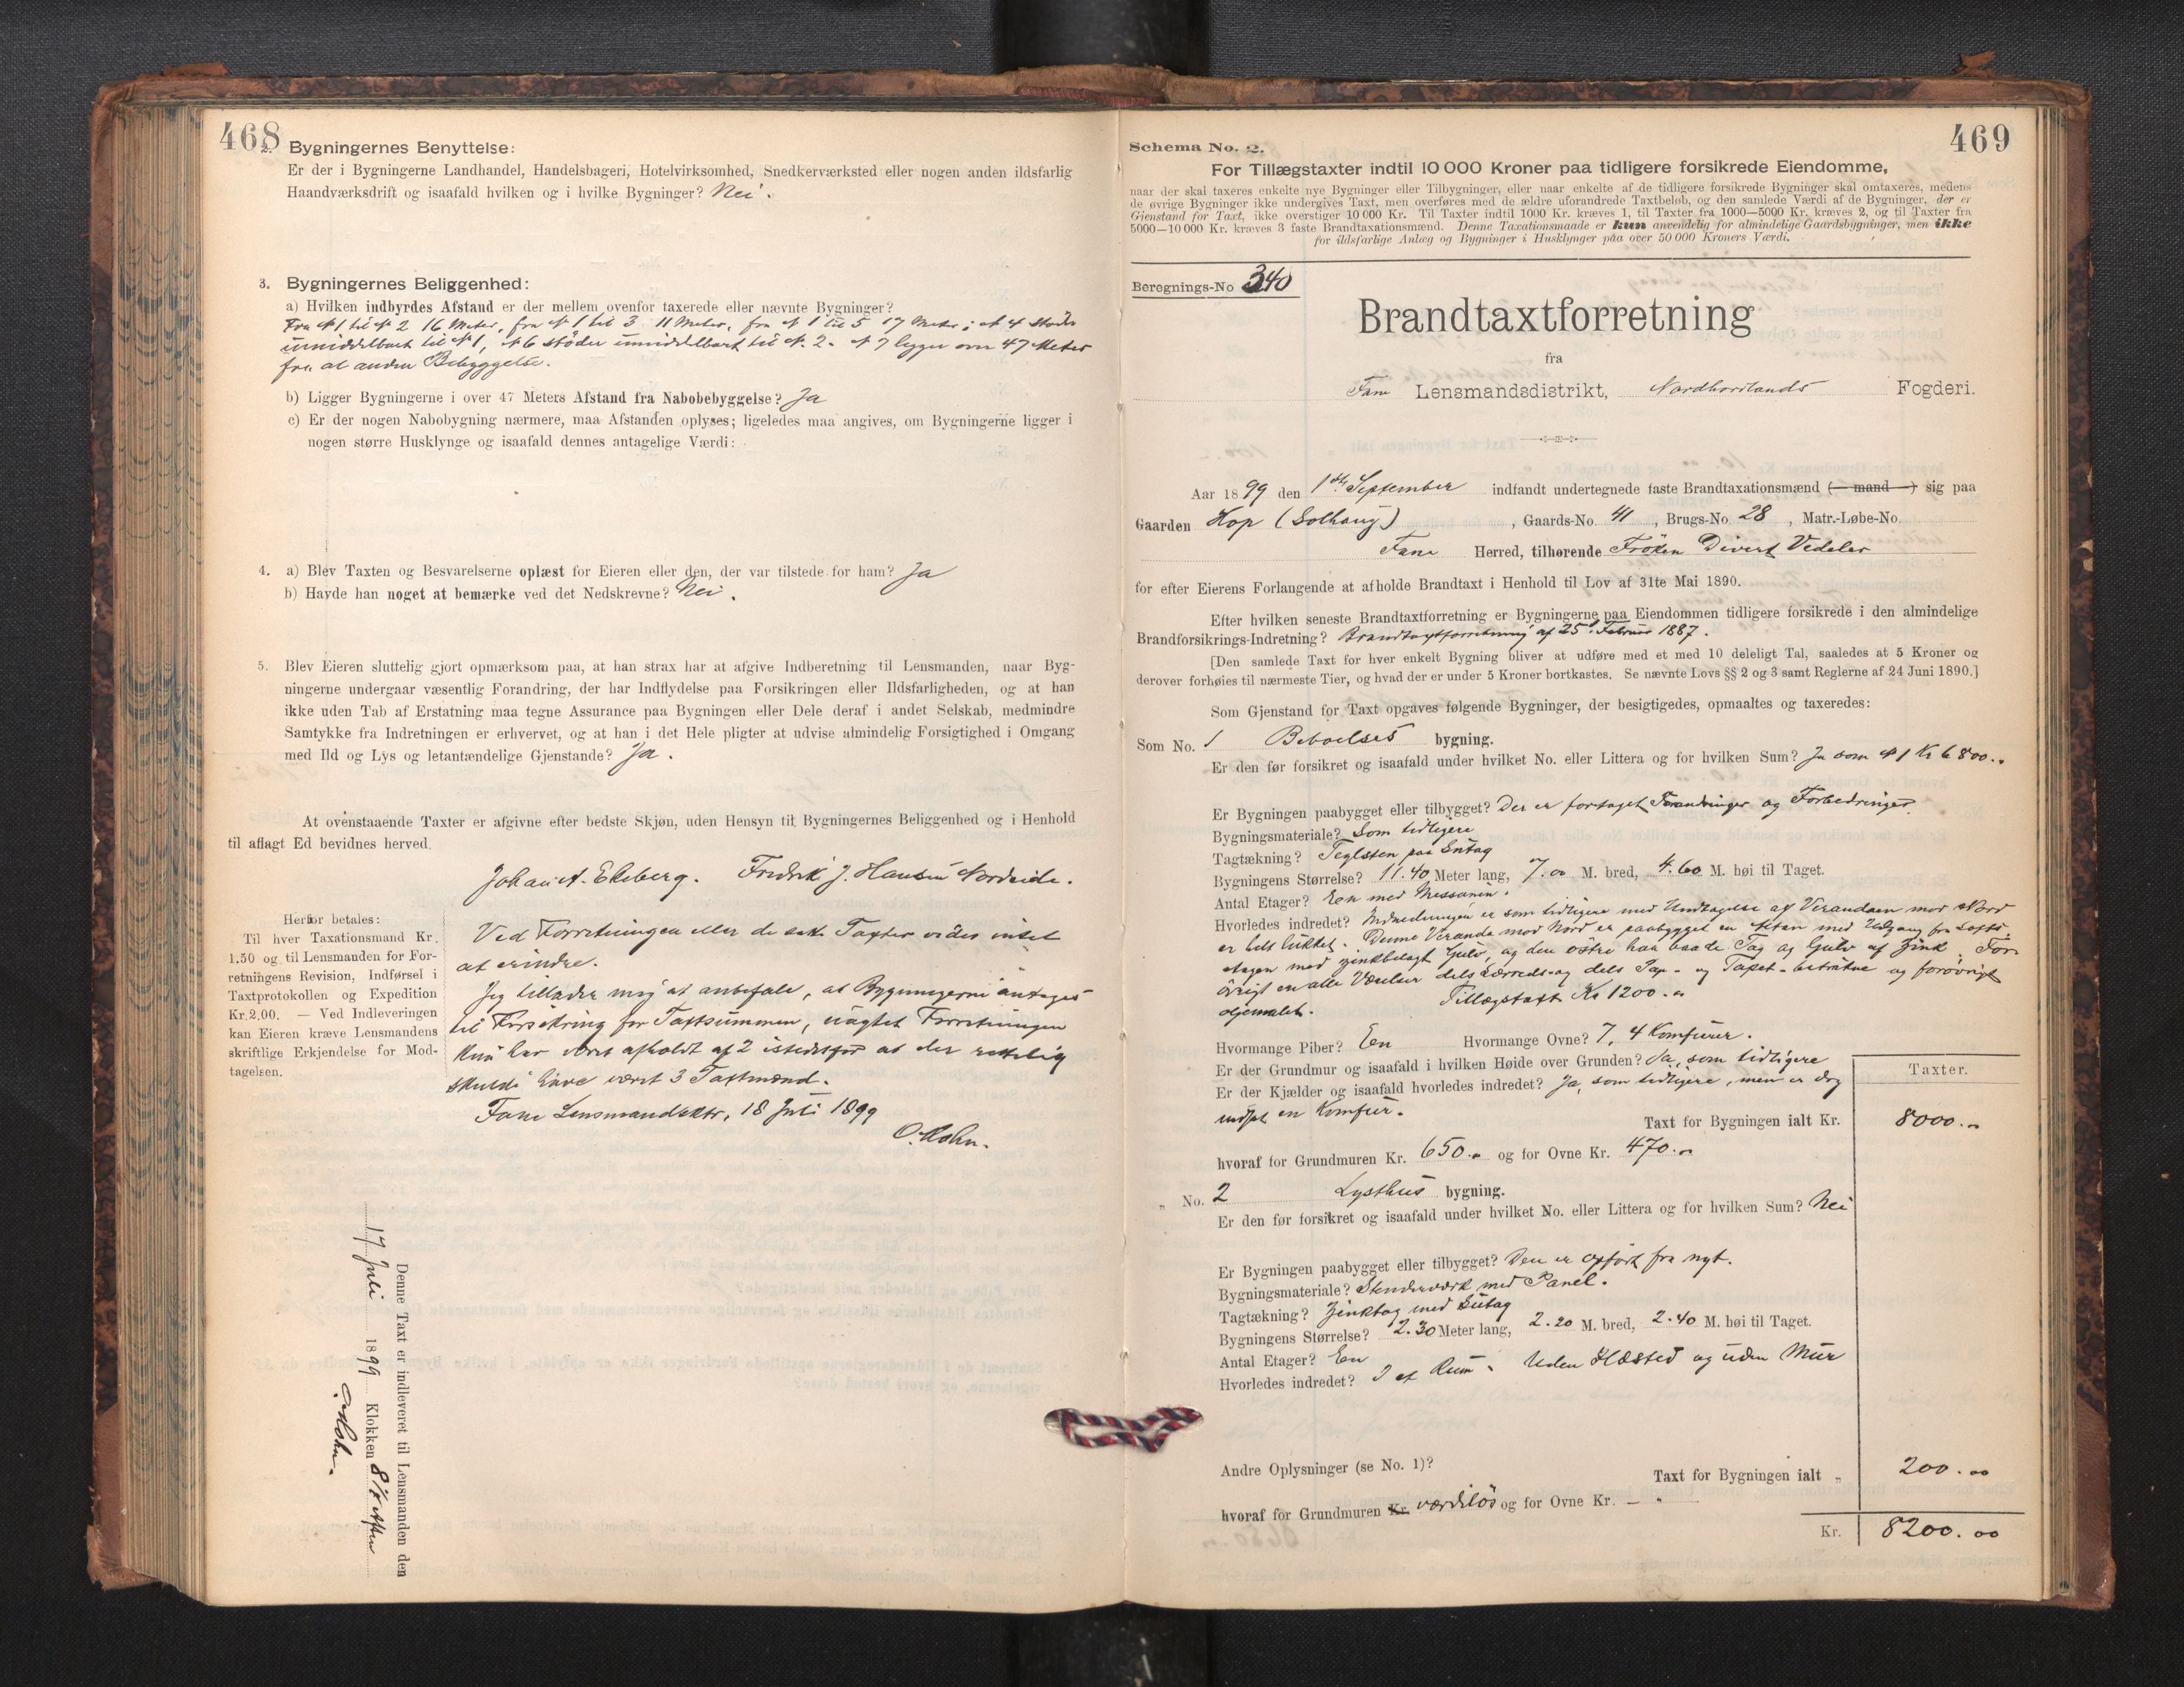 468
2. Bygningernes Benyttelse:
Er der i Bygningerne Landhandel, Handelsbageri, Hotelvirksomhed, Snedkerværksted eller nogen anden ildsfarlig
Haandværksdrift og isaafald hvilken og i hvilke Bygninger? Nei.
3. Bygningernes Beliggenhed:
a) Hvilken indbyrdes Afstand er der mellem ovenfor taxerede eller nævnte Bygninger?
Fra N 1 til N 2 16 Meter, fra N 1 til 3 11 Meter, fra N 1 til 5 17 Meter; N 4 støder
umiddelbart til N 1, N 6 støder umiddelbart til N. 2. N 7 ligger over 47 Meter
fra al anden Bebyggelse.
b) Ligger Bygningerne i over 47 Meters Afstand fra Nabobebyggelse? Ja
c) Er der nogen Nabobygning nærmere, maa Afstanden oplyses; ligeledes maa angives, om Bygningerne ligger i
nogen større Husklynge og isaafald dennes antagelige Værdi:
4. a) Blev Taxten og Besvarelserne oplæst for Eieren eller den, der var tilstede for ham? Ja
b) Havde han noget at bemærke ved det Nedskrevne? Nei.
5. Blev Eieren sluttelig gjort opmærksom paa, at han strax har at afgive Indberetning til Lensmanden, naar Byg-
ningerne undergaar væsentlig Forandring, der har Indflydelse paa Forsikringen eller Ildsfarligheden, og at han
ikke uden Tab af Erstatning maa tegne Assurance paa Bygningen eller Dele deraf i andet Selskab, medmindre
Samtykke fra Indretningen er erhvervet, og at han i det Hele pligter at udvise almindelig Forsigtighed i Omgang
med Ild og Lys og letantændelige Gjenstande? Ja.
At ovenstaaende Taxter er afgivne efter bedste Skjøn, uden Hensyn til Bygningernes Beliggenhed og i Henhold
til aflagt Ed bevidnes herved.
Johan A. Ekeberg. Fredrik J. Hansen Nordeide.
Herfor betales:
Til hver Taxationsmand Kr.
1.50 og til Lensmanden for For-
retningens Revision, Indførsel i
Taxtprotokollen og Expedition
Kr. 2,00. — Ved Indleveringen
kan Eieren kræve Lensmandens
skriftlige Erkjendelse for Mod-
tagelsen.
Ved Forretningen eller de satte Taxter vides intet
at erindre.
Jeg tillader mig at anbefale, at Bygningerne antages
til Forsikring for Taxtsummen, uagtet Forretningen
kun har været afholdt af 2 istedetfor at der rettelig
skulde have været 3 Taxtmænd.
Fane Lensmandsktr, 18 Juli 1899
O. Hohn.
Denne Taxt er indleveret til Lensmanden den
17 Juli 1899 Klokken 8 1/2 Aften
O. Hohn.
469
Schema No. 2.
For Tillægstaxter indtil 10 000 Kroner paa tidligere forsikrede Eiendomme,
naar der skal taxeres enkelte nye Bygninger eller Tilbygninger, eller naar enkelte af de tidligere forsikrede Bygninger skal omtaxeres, medens
de øvrige Bygninger ikke undergives Taxt, men overføres med de ældre uforandrede Taxtbeløb, og den samlede Værdi af de Bygninger, der er
Gjenstand for Taxt, ikke overstiger 10 000 Kr. Til Taxter indtil 1000 Kr. kræves 1, til Taxter fra 1000—5000 Kr. kræves 2, og til Taxter fra
5000—10 000 Kr. kræves 3 faste Brandtaxationsmænd. Denne Taxationsmaade er kun anvendelig for almindelige Gaardsbygninger, men ikke
for ildsfarlige Anlæg og Bygninger i Husklynger paa over 50 000 Kroners Værdi.
Beregnings-No 340
Brandtaxtforretning
fra
Fane Lensmandsdistrikt, Nordhordlands Fogderi.
Aar 1899 den 1ste September indfandt undertegnede faste Brandtaxationsmænd (— mand —) sig paa
Gaarden Hop (Solhaug), Gaards-No. 41, Brugs-No 28, Matr.-Løbe-No.
Fane Herred, tilhørende Frøken Divert Vedeler
for efter Eierens Forlangende at afholde Brandtaxt i Henhold til Lov af 31te Mai 1890.
Efter hvilken seneste Brandtaxtforretning er Bygningerne paa Eiendommen tidligere forsikrede i den almindelige
Brandforsikrings-Indretning? Brandtaxtforretning af 25. Februar 1887.
[Den samlede Taxt for hver enkelt Bygning bliver at udføre med et med 10 deleligt Tal, saaledes at 5 Kroner og
derover forhøies til nærmeste Tier, og hvad der er under 5 Kroner bortkastes. Se nævnte Lovs §§ 2 og 3 samt Reglerne af 24 Juni 1890.]
Som Gjenstand for Taxt opgaves følgende Bygninger, der besigtigedes, opmaaltes og taxeredes:
Som No. 1 Beboelses bygning.
Er den før forsikret og isaafald under hvilket No. eller Littera og for hvilken Sum? Ja som N 1 Kr 6800.-
Er Bygningen paabygget eller tilbygget? Der er foretaget Forandringer og Forbedringer.
Bygningsmateriale? Som tidligere
Tagtækning? Teglsten paa Sutag
Bygningens Størrelse? 11.40 Meter lang, 7.00 M. bred, 4.60 M. høi til Taget.
Antal Etager? En med Messanin.
Hvorledes indredet? Indredningen er som tidligere med Undtagelse af Verandaen mod Nord
er helt lukket. Denne Veranda mod Nord er paabygget en Altan med Udgang fra Lofts-
etagen med zinkbelagt Gulv, og den østre har baade Tag og Gulv af Zink. For-
øvrigt er alle Værelser dels Lærreds- og dels Pap- og Tapet-betrukne og forøvrigt
oljemalet. Tillægstaxt Kr 1200.-
Hvormange Piber? En Hvormange Ovne? 7, 4 Komfurer.
Er der Grundmur og isaafald i hvilken Høide over Grunden? Ja, som tidligere
Er der Kjælder og isaafald hvorledes indredet? Ja, som tidligere, men er dog
indsat en Komfur.
Taxter.
Taxt for Bygningen ialt Kr. 8000.-
hvoraf for Grundmuren Kr. 650.- og for Ovne Kr. 470.-
„ No. 2 Lysthus bygning.
Er den før forsikret og isaafald under hvilket No. eller Littera og for hvilken Sum? Nei
Er Bygningen paabygget eller tilbygget? Den er opført fra nyt.
Bygningsmateriale? Stenderværk med Panel.
Tagtækning? Zinktag med Sutag
Bygningens Størrelse? 2.30 Meter lang, 2.20 M. bred, 2.40 M. høi til Taget.
Antal Etager? En
Hvorledes indredet? I et Rum. Uden Ildsted og uden Mur
Andre Oplysninger (se No. 1)?
Taxt for Bygningen ialt „ 200.00
hvoraf for Grundmuren Kr. værdiløs og for Ovne Kr. — „
Kr. 8200.00